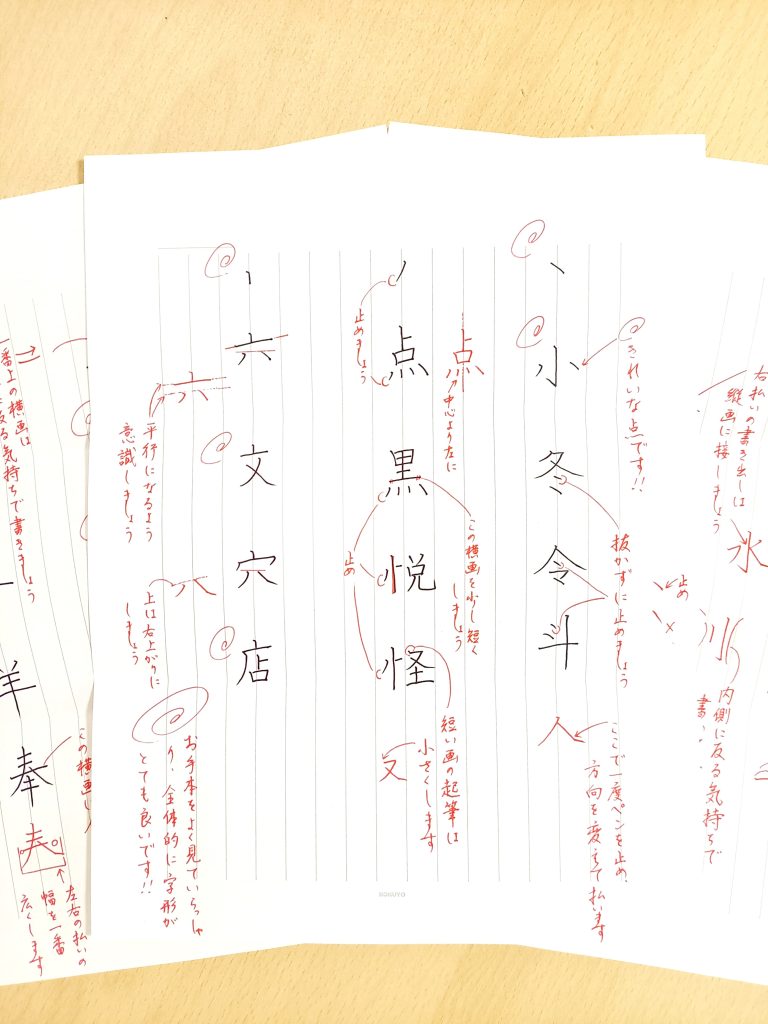 右払いの書き出しは
縦画に接しましょう
氷
止め
内側に反る気持ちで
きれいな点です!!
、
小
冬
令
斗
抜かずに止めましょう
人
ここで一度ペンを止め、
方向を変えて払います
点
中心より左に
この横画を少し短く
しましょう
短い画の起筆は
小さくします
又
点
黒
悦
怪
止めましょう
止め
六
文
穴
店
六
平行になるよう
意識しましょう
上は右上がりに
しましょう
お手本をよく見ていらっしゃ
り、全体的に字形が
とても良いです!!
KOKUYO
一番上の横画は
反る気持ちで書きましょう
洋
奉
この横画
左右の払いの
幅を一番
広くします